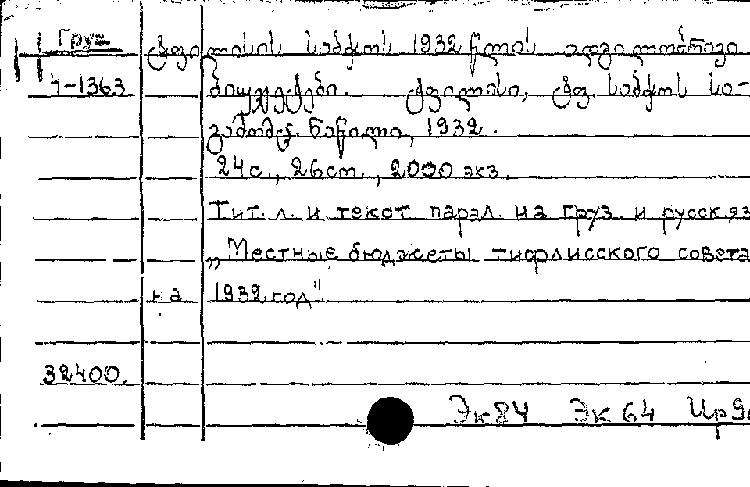 Груз
4-1363
ტფილისის საბჭოს 1932 წლის ადგილობრივი
ბიუჯეტები. ტფილისი, ტფ. საბჭოს სა-
გამომც. ნაწილი, 1932.
24 с., 26 cm., 2000 экз.
Тит. л. и текст парал. на груз. и русск яз
„Местные бюджеты тифлисского совета
на 1932 год"
32400.
Эк84 Эк64